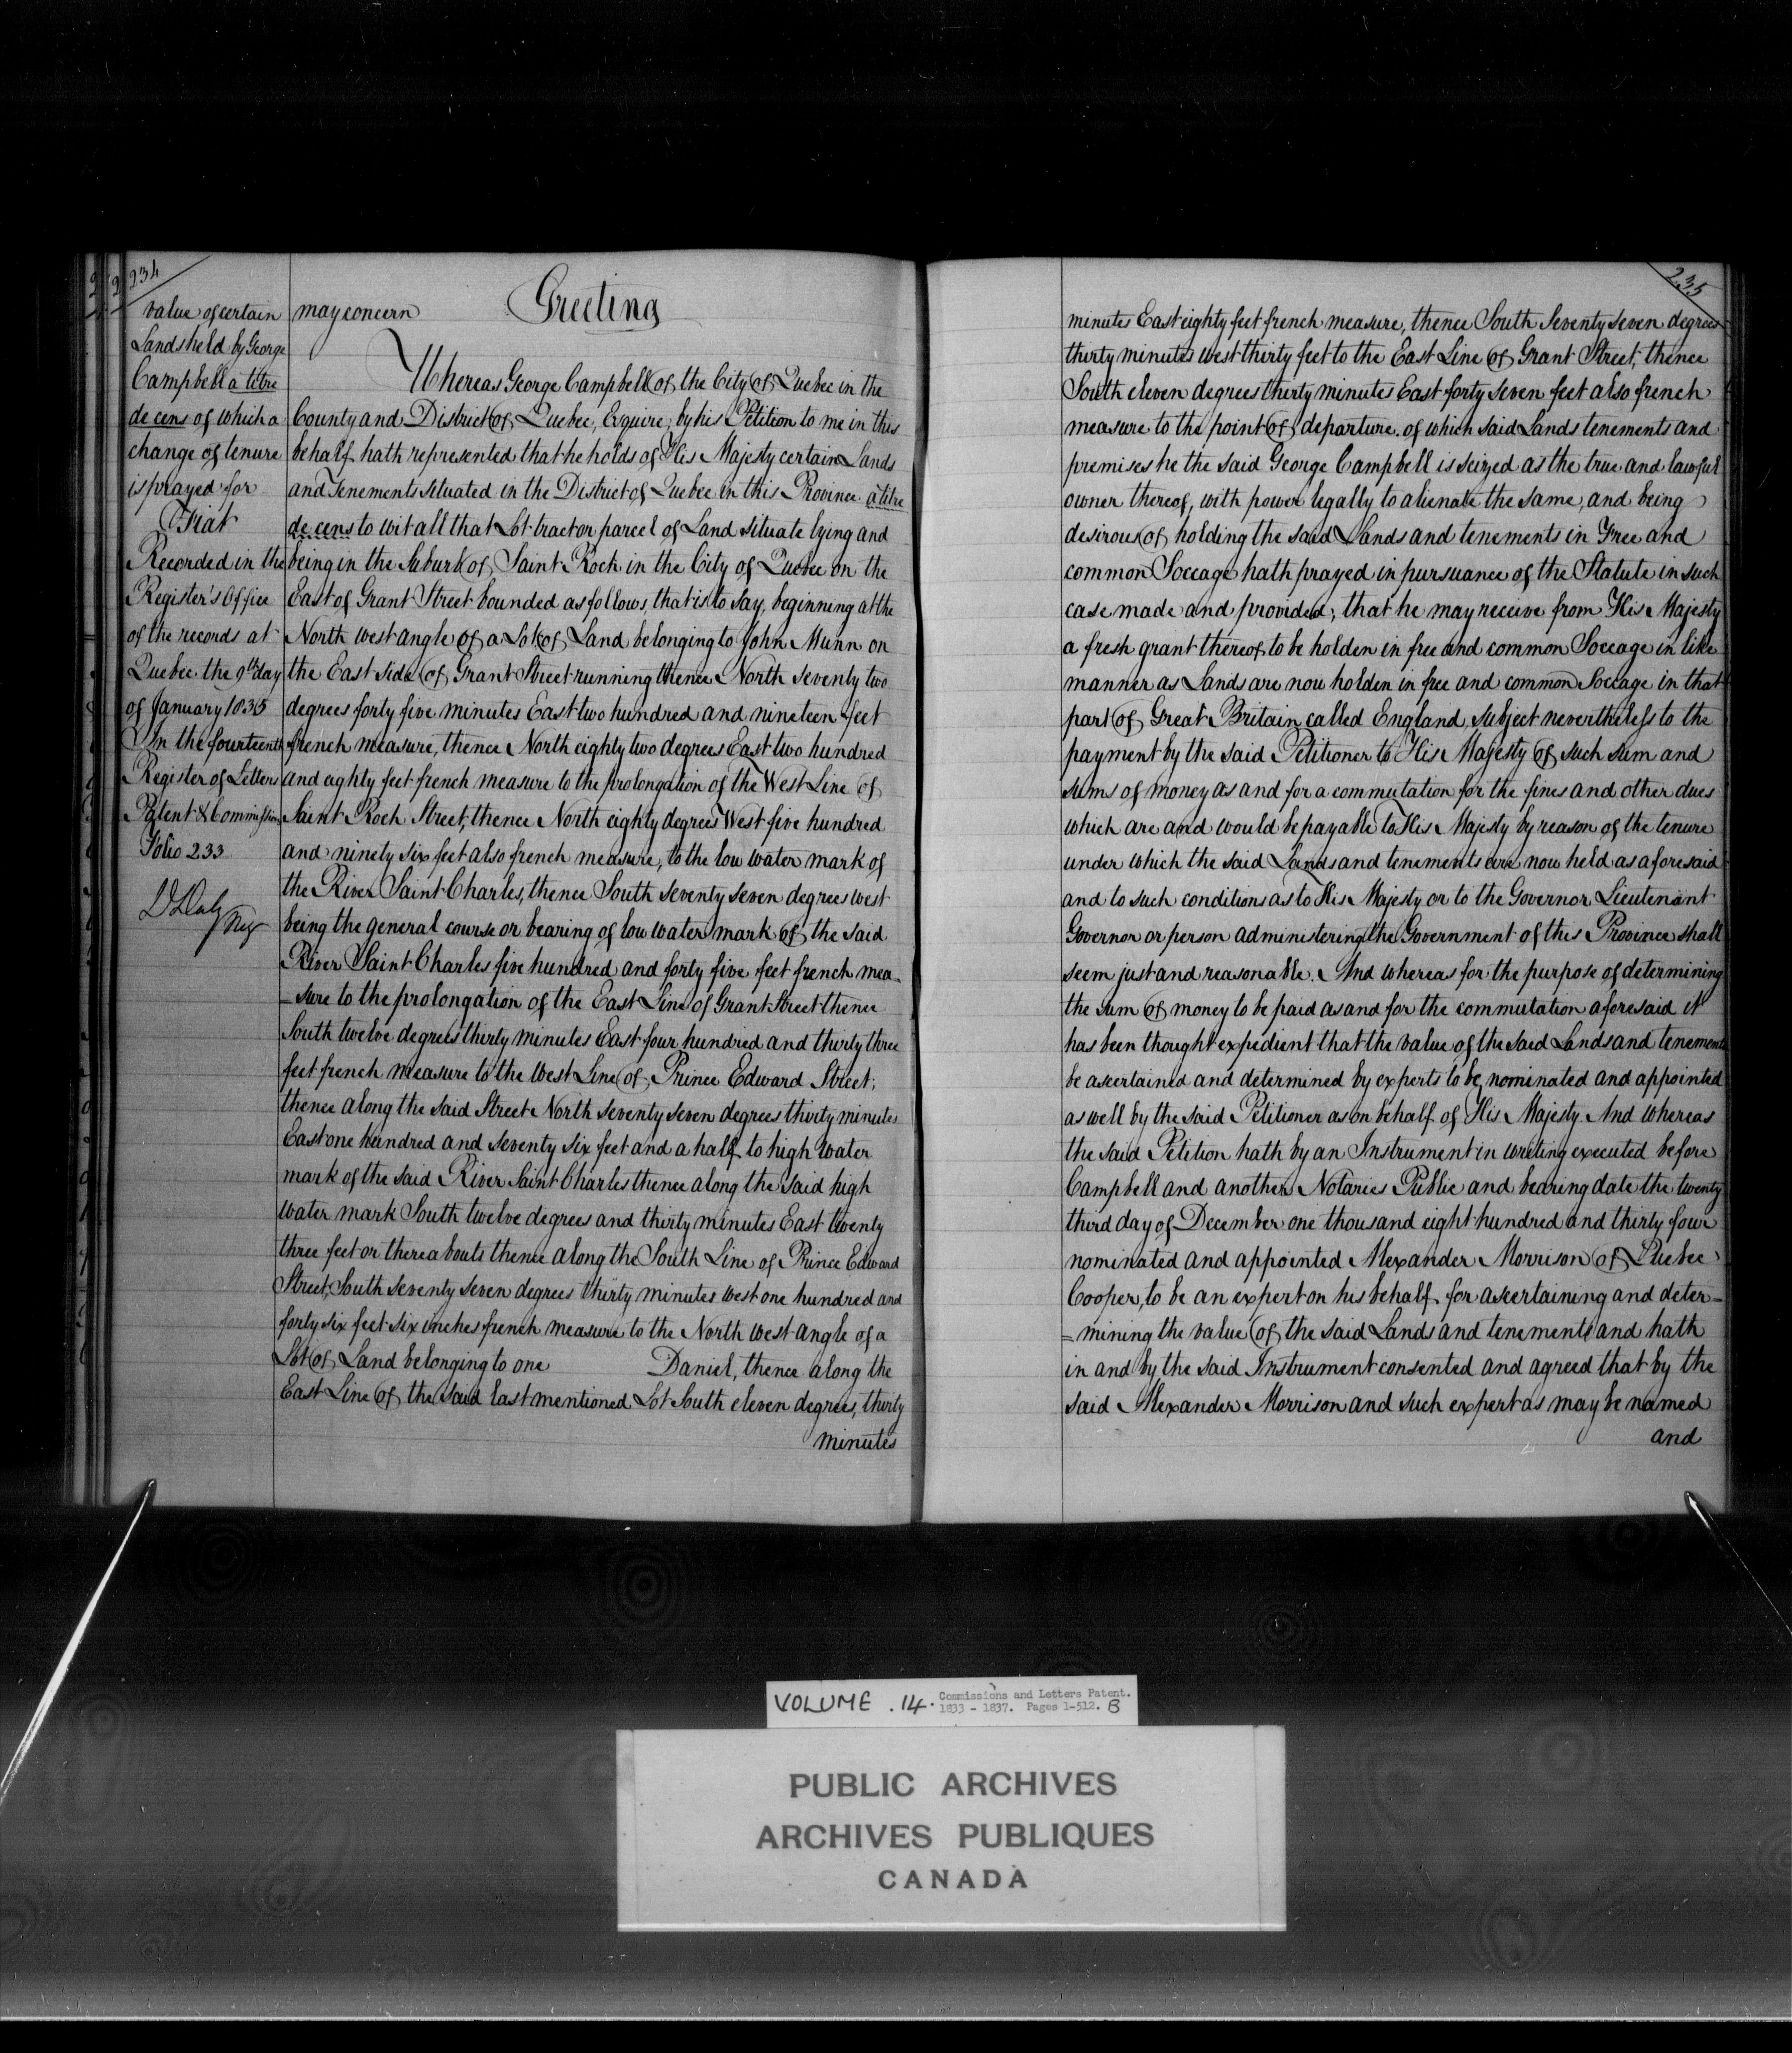 234
value of certain
Lands held by George
Campbell à titre
de cens of which a
change of tenure
is prayed for
Fiat
Recorded in the
Register's Office
of the records at
Quebec the 9th day
of January 1835
In the fourteenth
Register of Letters
Patent & Commissions
Folio 233
D Daly Reg
may concern Greeting
Whereas George Campbell of the City of Quebec in the
County and District of Quebec, Esquire, by his Petition to me in this
behalf hath represented that he holds of His Majesty certain Lands
and Tenements situated in the District of Quebec in this Province à titre
de cens to wit all that Lot tract or parcel of Land situate lying and
being in the Suburb of Saint Rock in the City of Quebec on the
East of Grant Street bounded as follows, that is to say, beginning at the
North west angle of a Lot of Land belonging to John Munn on
the East side of Grant Street running thence North seventy two
degrees forty five minutes East two hundred and nineteen feet
french measure, thence North eighty two degrees East two hundred
and eighty feet french measure to the prolongation of the West Line of
Saint Roch Street, thence North eighty degrees West five hundred
and ninety six feet also french measure, to the low water mark of
the River Saint Charles, thence South seventy seven degrees west
being the general course or bearing of low water mark of the said
River Saint Charles five hundred and forty five feet french mea-
-sure to the prolongation of the East Line of Grant Street thence
South twelve degrees thirty minutes East four hundred and thirty three
feet french measure to the West Line of Prince Edward Street;
thence along the said Street North seventy seven degrees thirty minutes
East one hundred and seventy six feet and a half to high water
mark of the said River Saint Charles thence along the said high
water mark South twelve degrees and thirty minutes East twenty
three feet or thereabouts thence along the South Line of Prince Edward
Street, South seventy seven degrees thirty minutes west one hundred and
forty six feet six inches french measure to the North west angle of a
Lot of Land belonging to one Daniel, thence along the
East Line of the said last mentioned Lot South eleven degrees, thirty
minutes
235
minutes East eighty feet french measure, thence South Seventy seven degrees
thirty minutes west thirty feet to the East Line of Grant Street, thence
South eleven degrees thirty minutes East forty seven feet also french
measure to the point of departure. of which said Lands tenements and
premises he the said George Campbell is seized as the true and lawful
owner thereof, with power legally to alienate the same, and being
desirous of holding the said Lands and tenements in Free and
common Soccage hath prayed in pursuance of the Statute in such
case made and provided; that he may receive from His Majesty
a fresh grant thereof to be holden in free and common Soccage in like
manner as Lands are now holden in free and common Soccage in that
part of Great Britain called England, subject nevertheless to the
payment by the said Petitioner to His Majesty of such sum and
sums of money as and for a commutation for the fines and other dues
which are and would be payable to His Majesty by reason of the tenure
under which the said Lands and tenements are now held as aforesaid
and to such conditions as to His Majesty or to the Governor Lieutenant
Governor or person administering the Government of this Province shall
seem just and reasonable. And whereas for the purpose of determining
the sum of money to be paid as and for the commutation aforesaid it
has been thought expedient that the value of the said Lands and tenements
be ascertained and determined by experts to be nominated and appointed
as well by the said Petitioner as on behalf of His Majesty. And whereas
the said Petition hath by an Instrument in writing executed before
Campbell and another Notaries Public and bearing date the twenty
third day of December one thousand eight hundred and thirty four
nominated and appointed Alexander Morrison of Quebec
Cooper, to be an expert on his behalf for ascertaining and deter-
=mining the value of the said Lands and tenements and hath
in and by the said Instrument consented and agreed that by the
said Alexander Morrison and such expert as may be named
and
VOLUME . 14. Commissions and Letters Patent.
1833 - 1837. Pages 1-512. B
PUBLIC ARCHIVES
ARCHIVES PUBLIQUES
CANADA